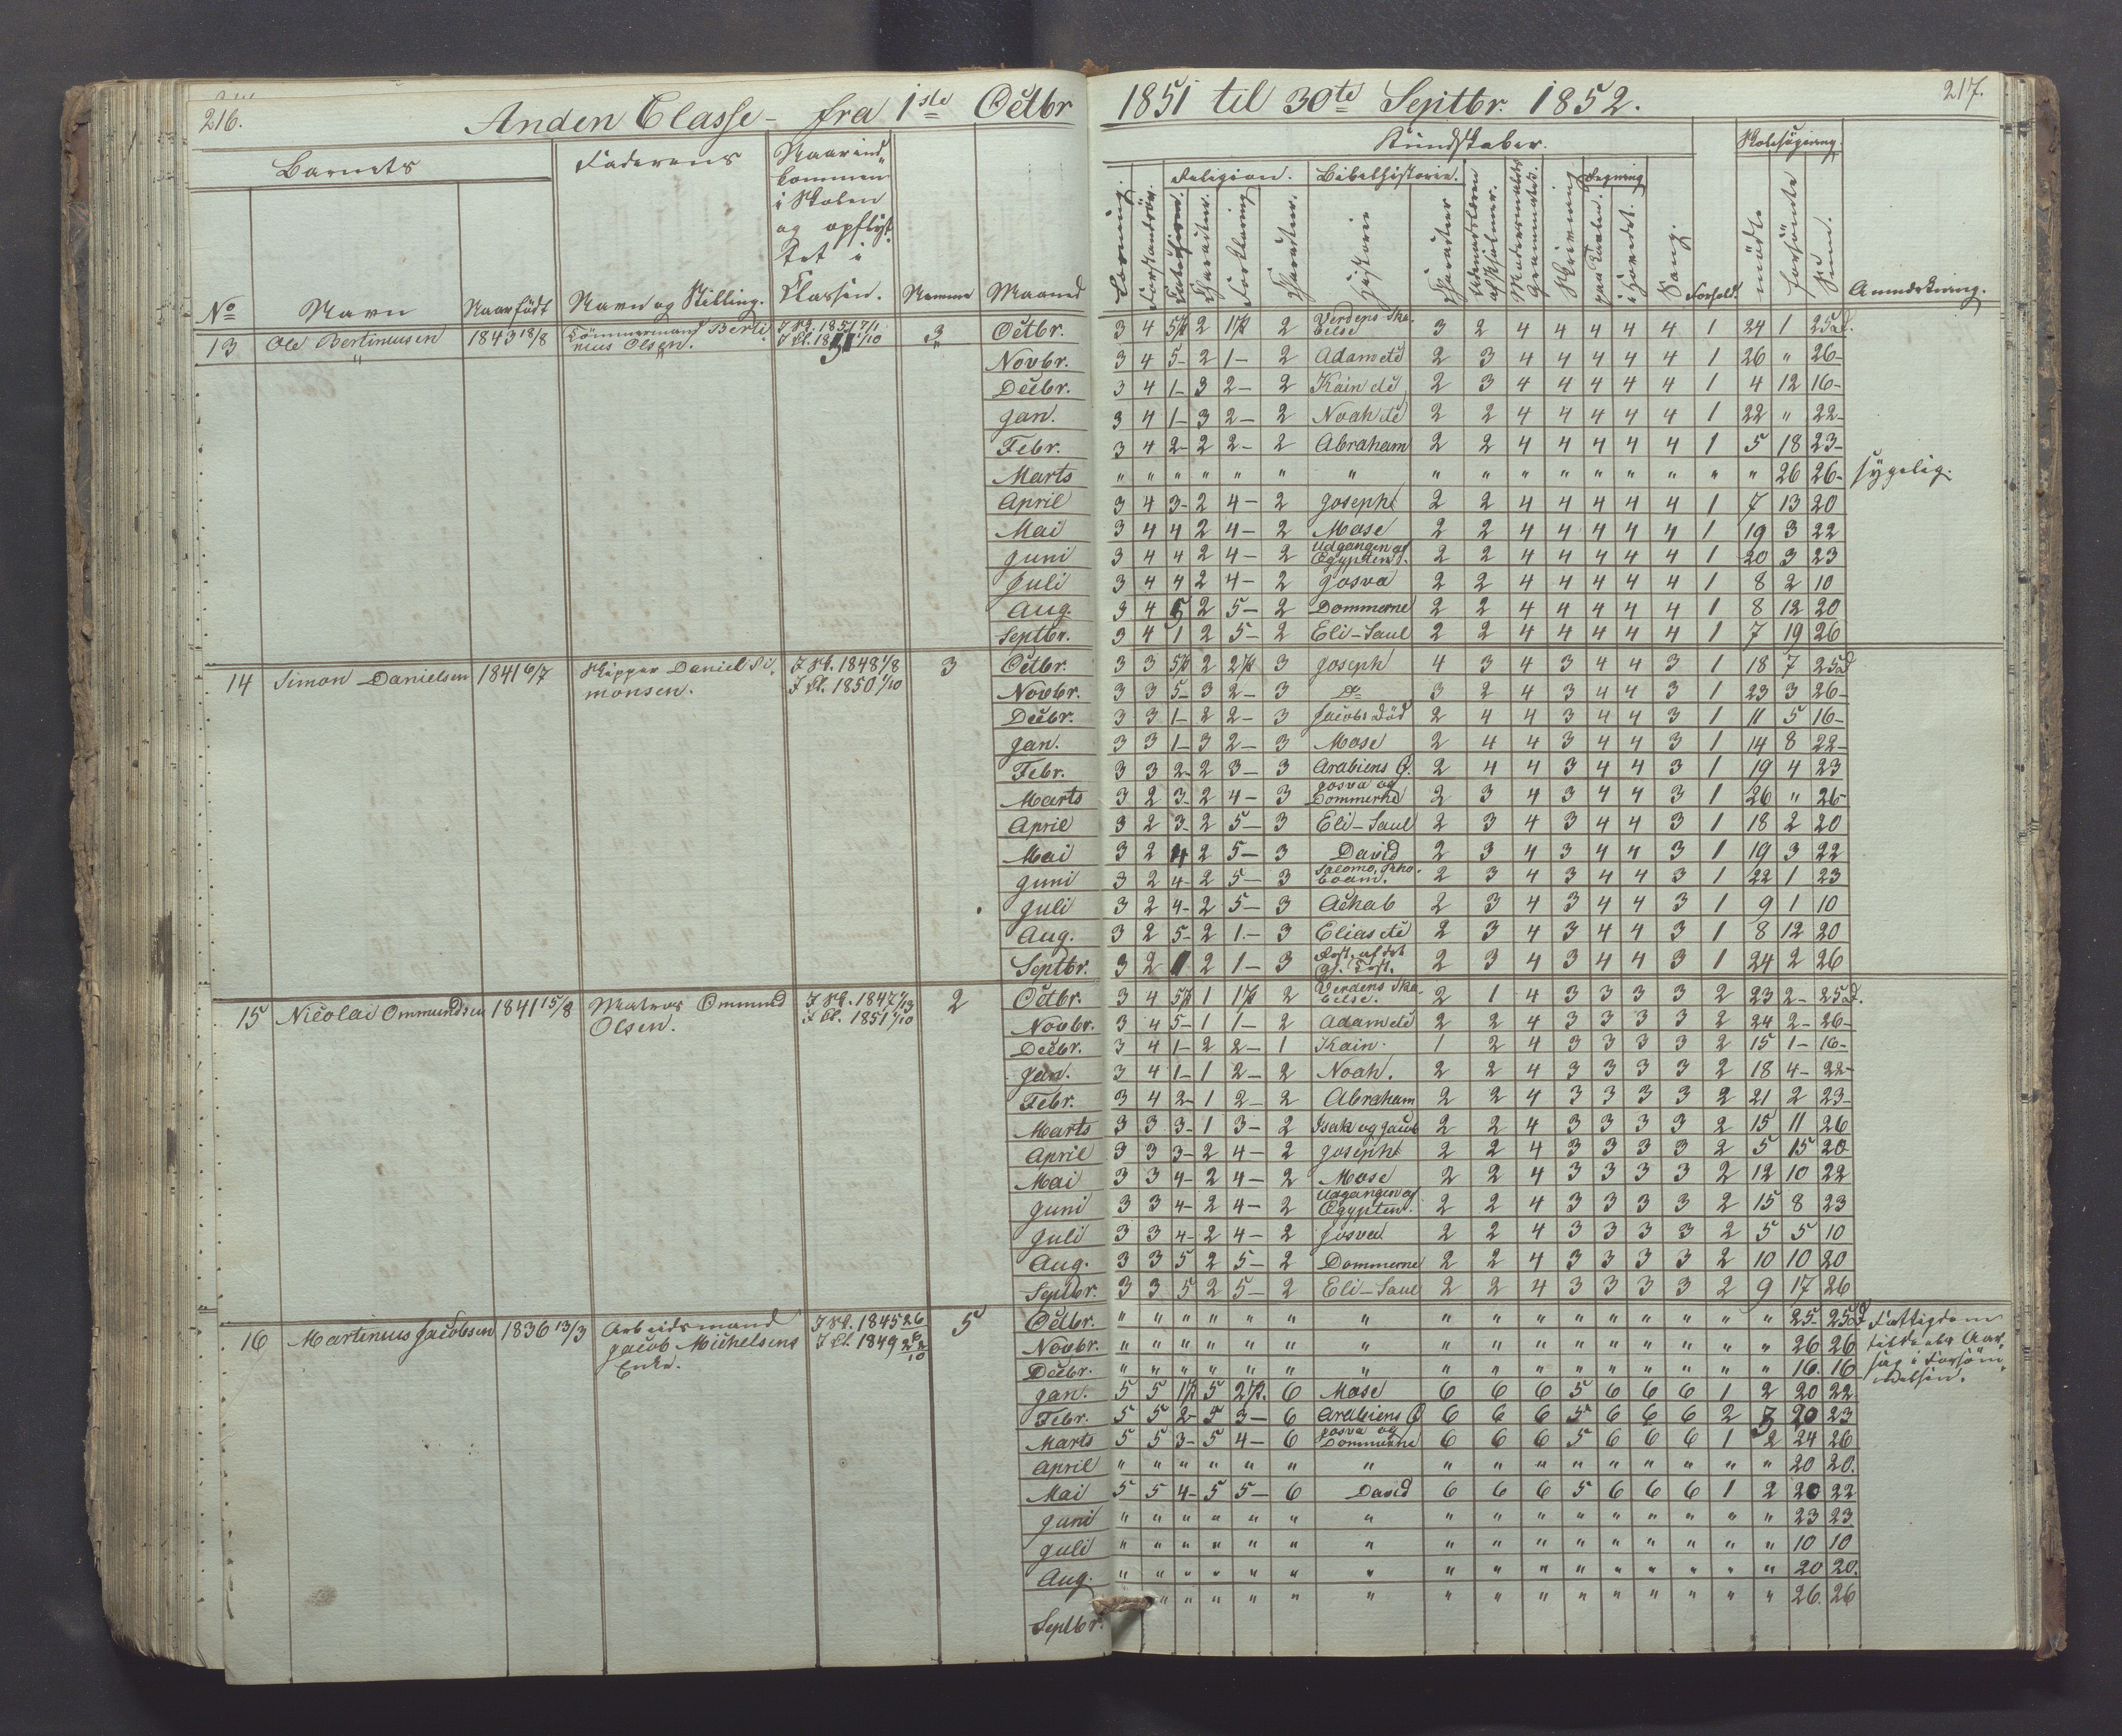 216.
Anden Classe - fra 1ste Octbr 1851 til 30te Septbr. 1852.
217.
Barnets
Faderens
Naar ind-
kommen
i Skolen
og opflyt-
tet i
Klassen.
No
Navn
Naar født
Navn og Stilling.
Numer
Maaned
Kundskaber.
Skolesøgning.
Religion.
Bibelhistorie.
Regning
Læsning.
Forstandsøv.
Charakter.
Forklaring
Charakter.
Historie
Charakter
Modersmaalets
Grammatik.
Skrivning
paa Tavlen.
i Hovedet.
Sang.
Forhold.
mødte
forsømte
Sum.
Anmærkning.
13 Ole Bertineusen 1843 18/8 Tømmermand Berti-
neus Olsen.
I Sk. 1851 7/1
I Cl. 1851 1/10
3
Octbr. 3 4 5/1 2 1/1 2 Verdens Ska-
belse 3 2 4 4 4 4 4 1 24 1 25 D.
Novbr. 3 4 5- 2 1- 2 Adam etc 2 3 4 4 4 4 4 1 26 " 26-
Decbr. 3 4 1- 3 2- 2 Kain etc 2 3 4 4 4 4 4 1 4 12 16-
Jan. 3 4 1- 3 2- 2 Noah etc 2 2 4 4 4 4 4 1 22 " 22-
Febr. 3 4 2- 2 2- 2 Abraham 2 2 4 4 4 4 4 1 5 18 23-
Marts " " " " " " " " " " " " " " " " 26 26- sygelig.
April 3 4 3- 2 4- 2 Joseph 2 2 4 4 4 4 4 1 7 13 20
Mai 3 4 4 2 4- 2 Mose 2 2 4 4 4 4 4 1 19 3 22
Juni 3 4 4 2 4- 2 Udgangen af
Ægypten. 2 2 4 4 4 4 4 1 20 3 23
Juli 3 4 4 2 4- 2 Josva 2 2 4 4 4 4 4 1 8 2 10
Aug. 3 4 5 2 5- 2 Dommerne 2 2 4 4 4 4 4 1 8 12 20
Septbr. 3 4 1 2 5- 2 Eli-Saul 2 2 4 4 4 4 4 1 7 19 26
14 Simon Danielsen 1841 6/7 Skipper Daniel Si-
monsen.
I Sk. 1848 1/8
I Cl. 1850 1/10
3
Octbr. 3 3 5/1 2 2/1 3 Joseph 4 3 4 3 4 4 3 1 18 7 25 D
Novbr. 3 3 5- 3 2- 3 Do 3 2 4 3 4 4 3 1 23 3 26-
Decbr. 3 3 1- 2 2- 3 Jacobs Død 2 4 4 3 4 4 3 1 11 5 16-
Jan. 3 3 1- 3 2- 3 Mose 2 4 4 3 4 4 3 1 14 8 22-
Febr. 3 3 2- 2 3- 3 Arabiens Ø. 2 4 4 3 4 4 3 1 19 4 23
Marts 3 2 3- 2 4- 3 Josva og
Dommerne 2 3 4 3 4 4 3 1 26 " 26-
April 3 2 3- 2 5- 3 Eli-Saul 2 3 4 3 4 4 3 1 18 2 20
Mai 3 2 4 2 5- 3 David 2 3 4 3 4 4 3 1 19 3 22
Juni 3 2 4- 2 5- 3 Salomo, Reho-
boam. 2 3 4 3 4 4 3 1 22 1 23
Juli 3 2 4- 2 5- 3 Achab 2 3 4 3 4 4 3 1 9 1 10
Aug. 3 2 5- 2 1.- 3 Elias etc 2 3 4 3 4 4 3 1 8 12 20
Septbr. 3 2 1 2 1- 3 Rest. af det
gl. Test. 2 3 4 3 4 4 3 1 24 2 26
15 Nicolai Ommundsen 1841 15/8 Matros Ommund
Olsen.
I Sk. 1847 1/13
I Cl. 1851 1/10
2
Octbr. 3 4 5/1 1 1/1 2 Verdens Ska-
belse. 2 1 4 3 3 3 3 2 23 2- 25 D.
Novbr. 3 4 5- 1 1- 2 Adam etc 2 2 4 3 3 3 3 2 24 2- 26-
Decbr. 3 4 1- 2 2- 1 Kain. 1 2 4 3 3 3 3 2 15 1- 16-
Jan. 3 4 1- 1 2- 2 Noah. 2 2 4 3 3 3 3 2 18 4- 22-
Febr. 3 4 2- 1 2- 2 Abraham 2 2 4 3 3 3 3 2 21 2 23-
Marts 3 3 3- 1 3- 2 Isak og Jacob 2 2 4 3 3 3 3 2 15 11 26
April 3 3 3- 2 4- 2 Joseph 2 2 4 3 3 3 3 2 5 15 20
Mai 3 3 4- 2 4- 2 Mose 2 2 4 3 3 3 3 2 12 10 22
Juni 3 3 4- 2 4- 2 Udgangen af
Ægypten. 2 2 4 3 3 3 3 2 15 8 23
Juli 3 3 4- 2 4- 2 Josva 2 2 4 3 3 3 3 2 5 5 10
Aug. 3 3 5 2 5- 2 Dommerne 2 2 4 3 3 3 3 2 10 10 20
Septbr. 3 3 5 2 5- 2 Eli-Saul 2 2 4 3 3 3 3 2 9 17 26
16 Martinius Jacobsen 1836 13/3 Arbeidsmand
Jacob Michelsens
Enke.
I Sk. 1845 26/6
I Cl. 1849 22/10
5
Octbr. " " " " " " " " " " " " " " " " 25- 25 D
Novbr. " " " " " " " " " " " " " " " " 26 26
Decbr. " " " " " " " " " " " " " " " " 16. 16
Fattigdom
Aar-
sag i Forsøm-
melsen.
Jan. 5 5 1/1 5 2/1. 6 Mose 6 6 6 5 6 6 6 1 2 20 22
Febr. 5 5 2- 5 3- 6 Arabiens Ø 6 6 6 5 6 6 6 2 3 20 23
Marts 5 5 3- 5 4- 6 Josva og
Dommerne 6 6 6 5 6 6 6 1 2 24 26
April " " " " " " " " " " " " " " " " 20 20.
Mai 5 5 4- 5 5- 6 David 6 6 6 5 6 6 6 1 2 20 22
Juni " " " " " " " " " " " " " " " " 23 23
Juli " " " " " " " " " " " " " " " " 10 10
Aug. " " " " " " " " " " " " " " " " 20 20.
Septbr. " " " " " " " " " " " " " " 26. 26